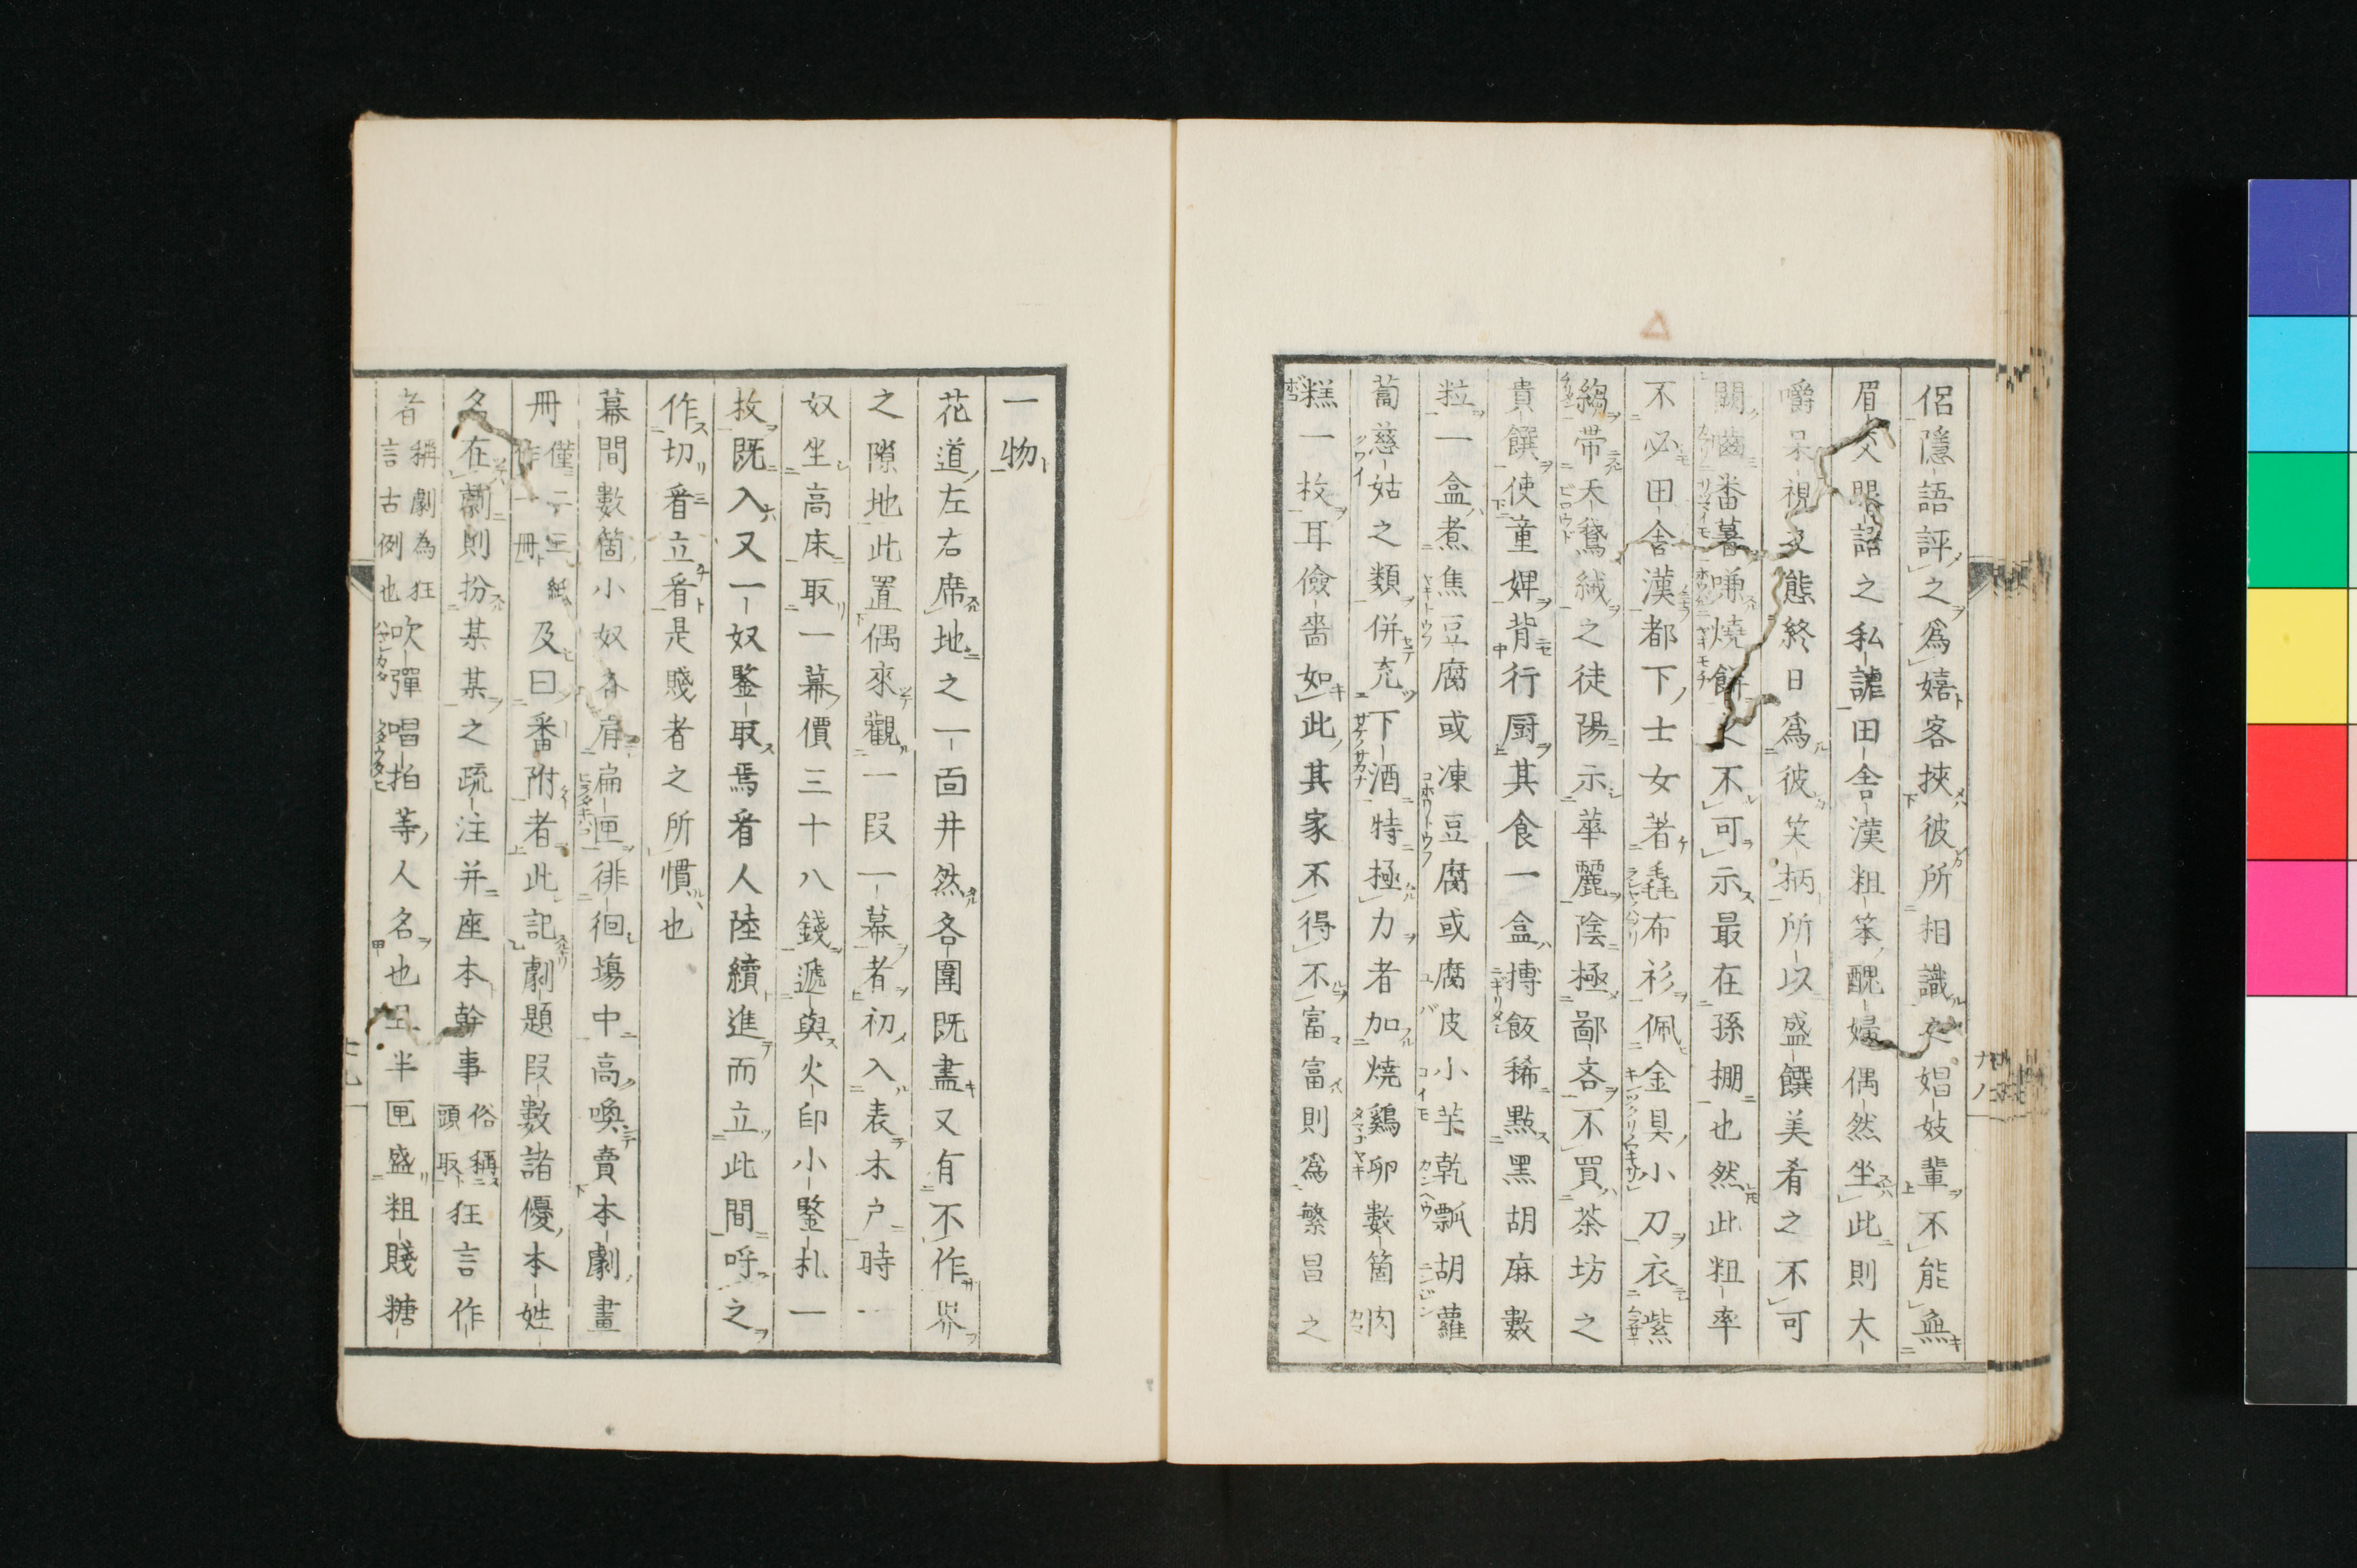 侶隱語評之爲嬉客挾彼所相識娼妓輩不能無
眉交眼語之私謔田舍漢粗笨醜婦偶然坐此則大
嚼呆視丈態終日爲彼笑柄所以盛饌美肴之不可
闕齒番薯嗛燒餅之不可示最在孫棚也然此粗率
不必田舍漢都下士女著毳布衫佩金具小刀衣紫
縐帶天鵞絨之徒陽示華麗陰極鄙吝不買茶坊之
貴饌使童婢背行厨其食一盒摶飯稀點黑胡麻數
粒一盒煮焦豆腐或凍豆腐或腐皮小芋乾瓢胡蘿
蔔慈姑之類併充下酒特極力者加燒鷄卵數箇肉
糕一枚耳儉嗇如此其家不得不富富則爲繁昌之
一物
花道左右席地之一面井然各圍既盡又有不作界
之隙地此置偶來觀一段一幕者初入表木戸時一
奴坐高床取一幕價三十八錢遞與火印小鑒札一
枚既入又一奴鑒取焉看人陸續進而立此間呼之
作切看立看是賤者之所慣也
幕間數箇小奴各肩扁匣徘徊塲中高喚賣本劇畫
冊僅二三紙作一冊及曰番附者此記劇題段數諸優本姓
名在劇則扮某某之疏注并座本幹事俗稱頭取狂言作
者稱劇為狂言古例也吹彈唱拍等人名也又半匣盛粗賤糖